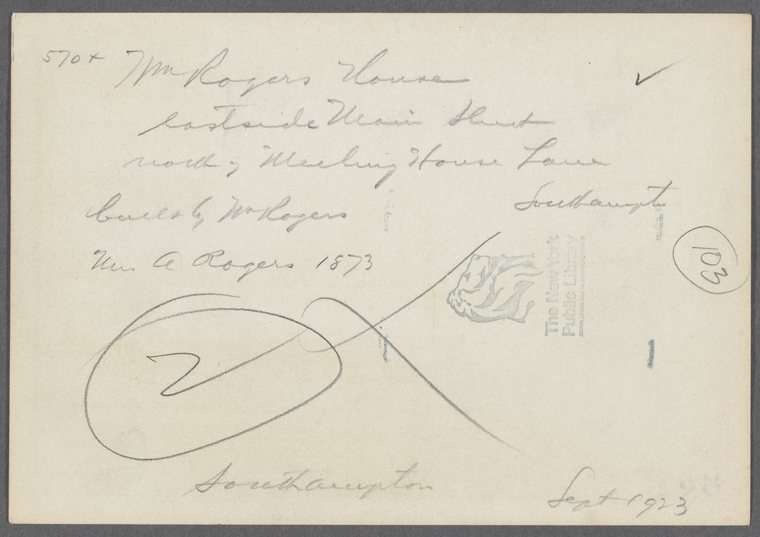 570+ Wm Rogers House ✓
eastside Main Street
north of Meeting House Lane
Southampton
built by Wm Rogers
Mrs A Rogers 1873
103
The New York
Public Library
2
Southampton
Sept 1923